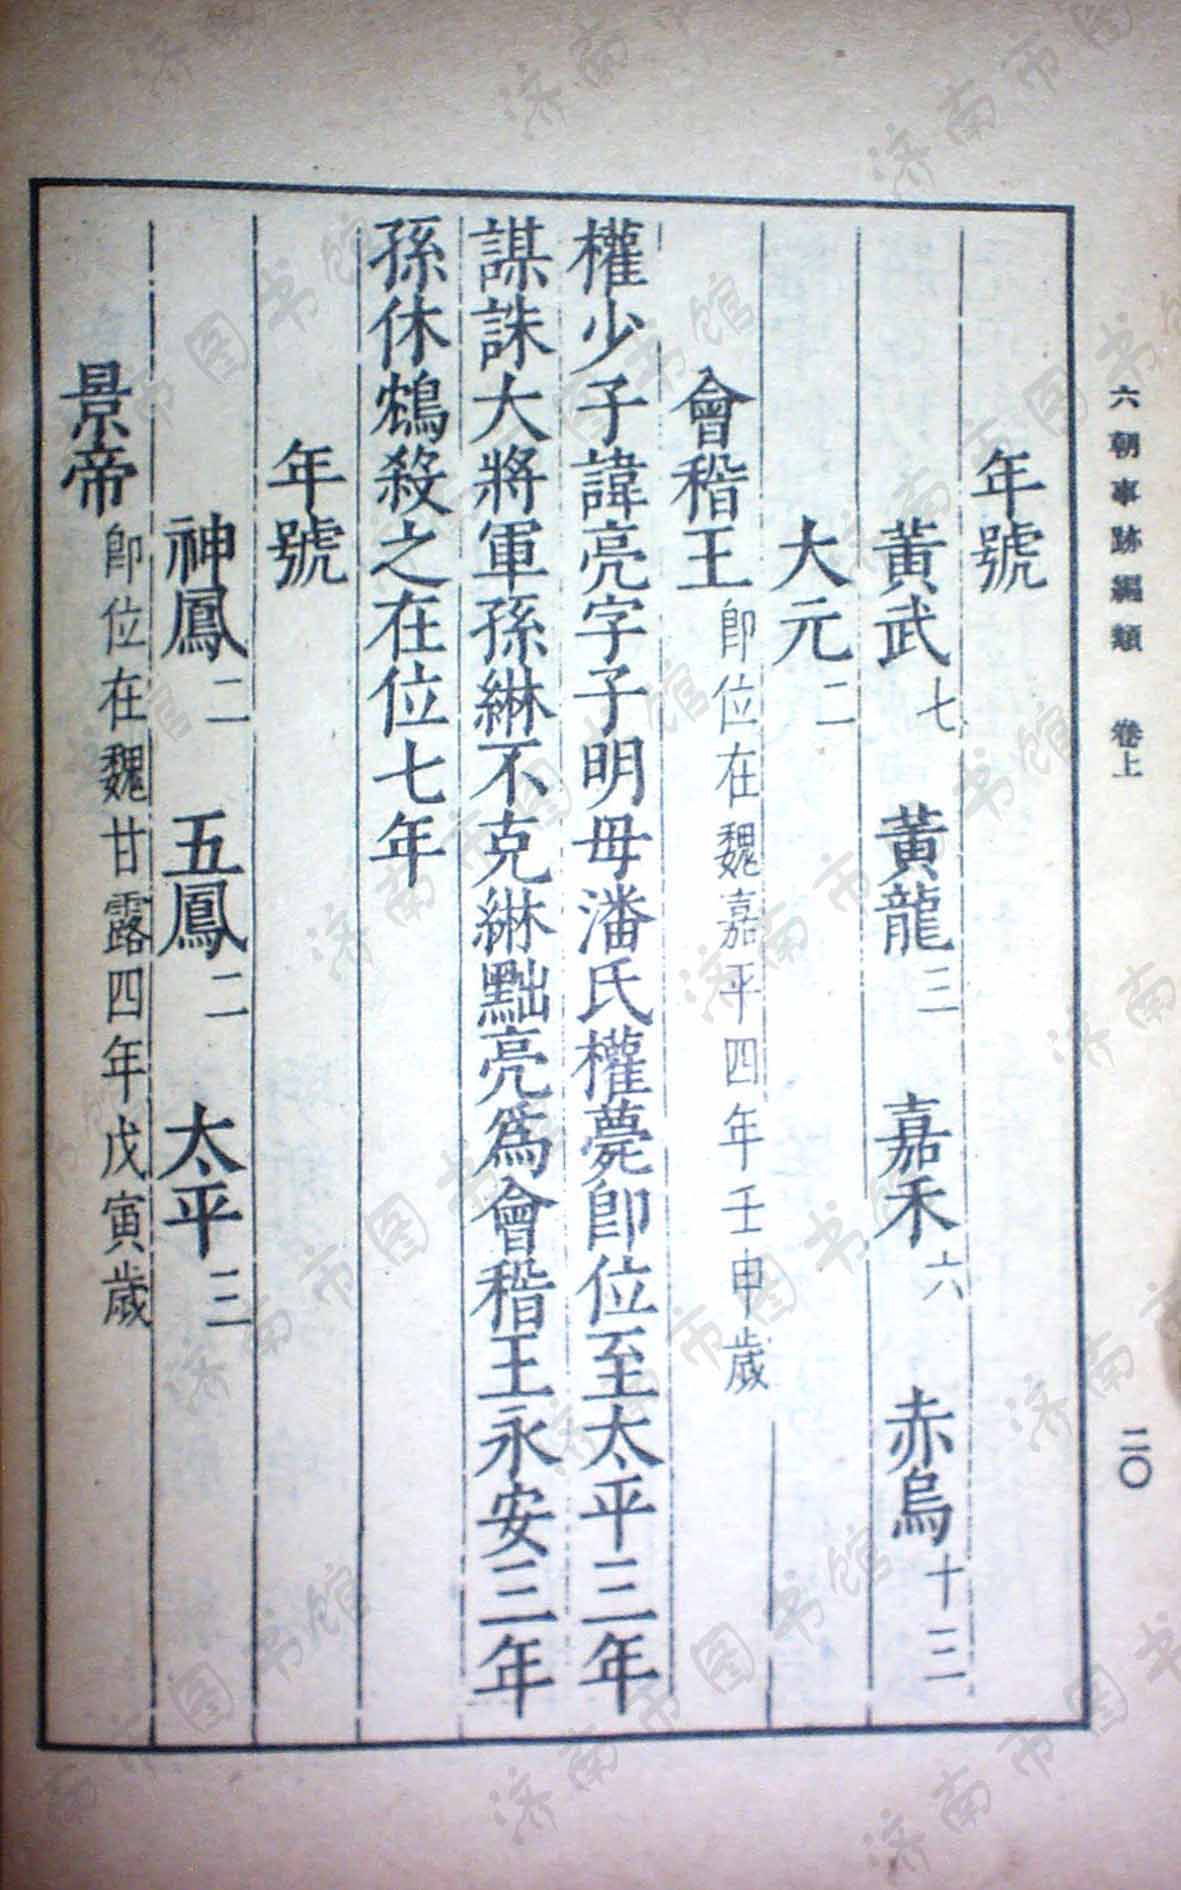 六朝事跡編類 卷上 二〇
年號
黃武七 黃龍三 嘉禾六 赤烏十三
大元二
會稽王即位在魏嘉平四年壬申歲
權少子諱亮字子明母潘氏權薨即位至太平三年
謀誅大將軍孫綝不克綝黜亮為會稽王永安三年
孫休鴆殺之在位七年
年號
神鳳二 五鳳二 太平三
景帝即位在魏甘露四年戊寅歲
济南市图书馆